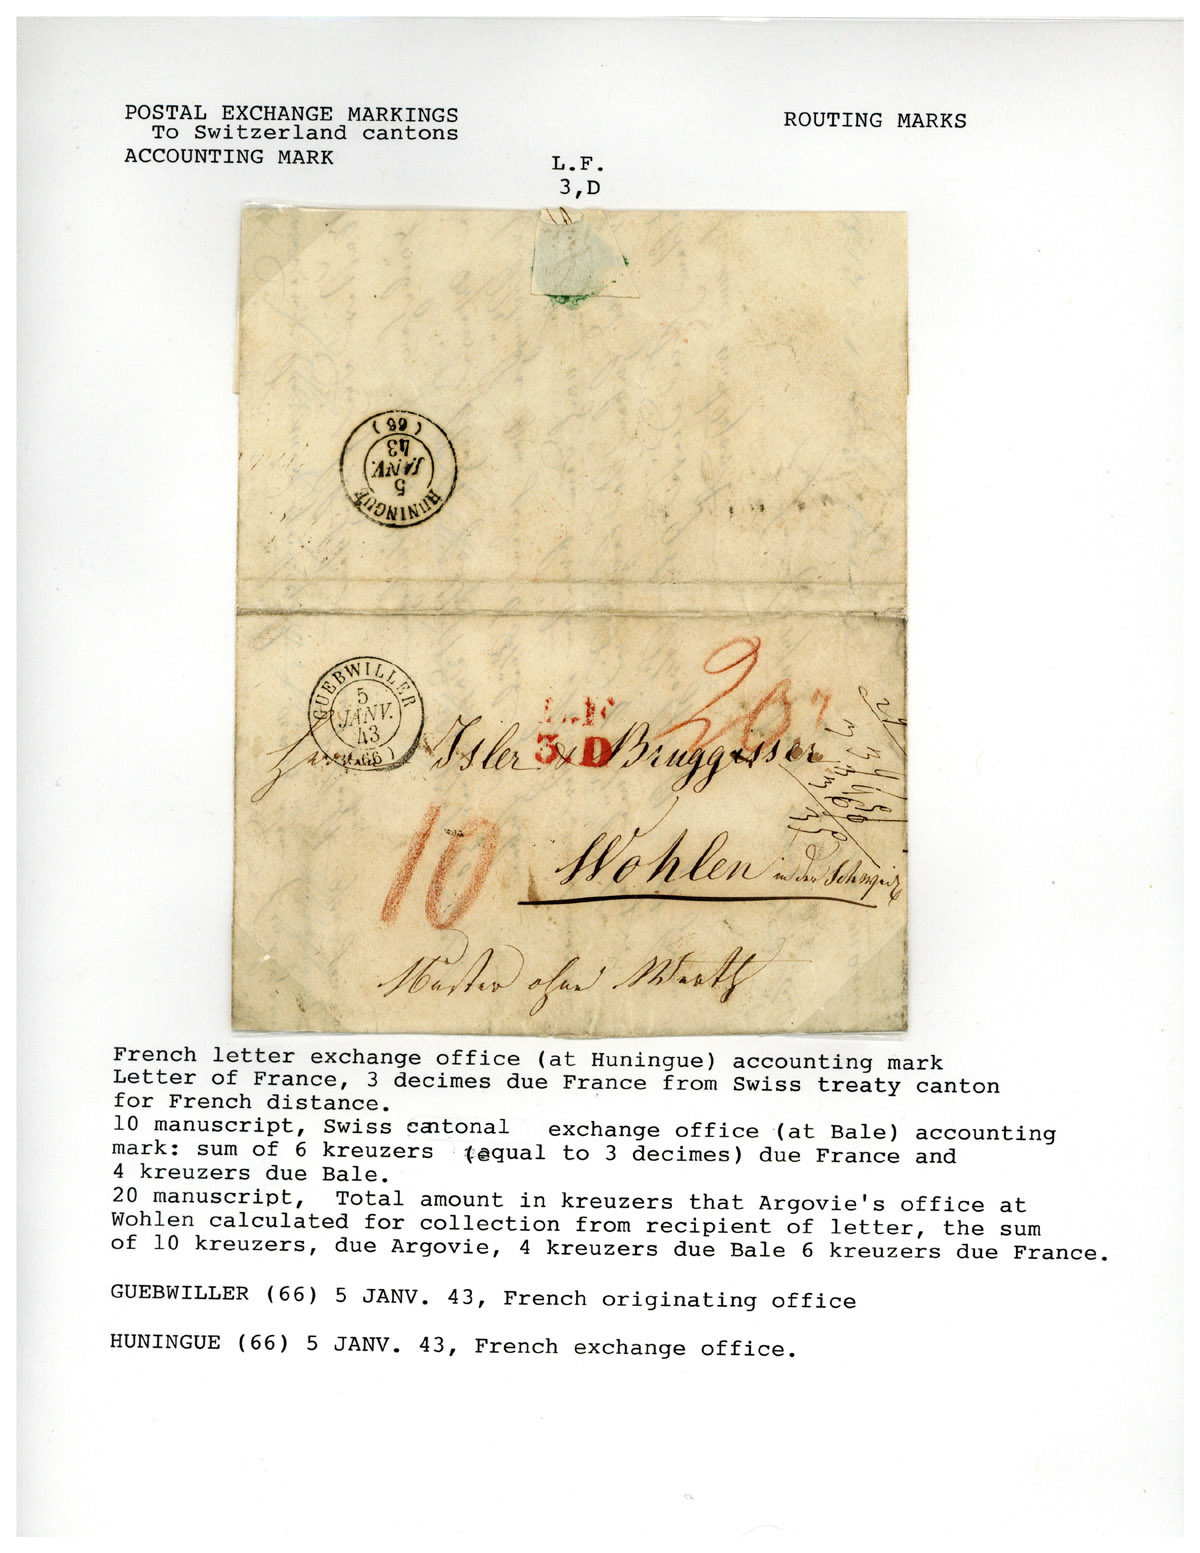 POSTAL EXCHANGE MARKINGS
To Switzerland cantons
ACCOUNTING MARK
ROUTING MARKS
L.F.
3,D
HUNINGUE
5
JANV.
43
(66)
GUEBWILLER
5
JANV.
43
(66)
L.F
3. D
20
Isler & Bruggisser
10
Wohlen in der Schweiz
Muster ohne Werth
French letter exchange office (at Huningue) accounting mark
Letter of France, 3 decimes due France from Swiss treaty canton
for French distance.
10 manuscript, Swiss cantonal exchange office (at Bale) accounting
mark: sum of 6 kreuzers (equal to 3 decimes) due France and
4 kreuzers due Bale.
20 manuscript, Total amount in kreuzers that Argovie's office at
Wohlen calculated for collection from recipient of letter, the sum
of 10 kreuzers, due Argovie, 4 kreuzers due Bale 6 kreuzers due France.
GUEBWILLER (66) 5 JANV. 43, French originating office
HUNINGUE (66) 5 JANV. 43, French exchange office.